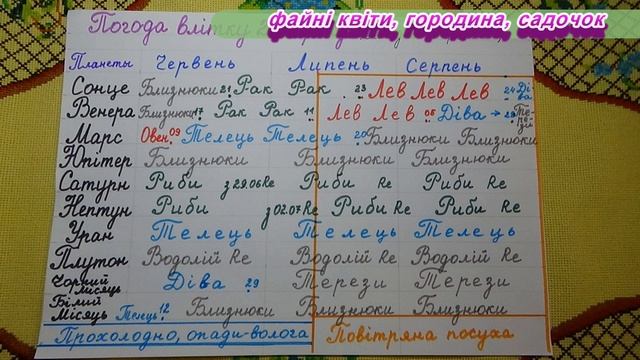 файні квіти, городина, садочок
Погода влітку
Планеты Червень Липень Серпень
Сонце Близнюки 21 Рак Рак 23 Лев Лев Лев 24 Діва
Венера Близнюки 17 Рак Рак 11 Лев Лев 05 Діва → 29 Терези
Марс Овен 09 Телець Телець 20 Близнюки Близнюки
Юпітер Близнюки Близнюки Близнюки
Сатурн Риби з 29.06 Re Риби Re Риби Re
Нептун Риби з 02.07 Re Риби Re Риби Re
Уран Телець Телець Телець
Плутон Водолій Re Водолій Re Водолій Re
Чорний місяць Діва 29 Терези Терези
Білий Місяць Телець 12 Близнюки Близнюки Близнюки
Прохолодно, опади-волога Повітряна посуха